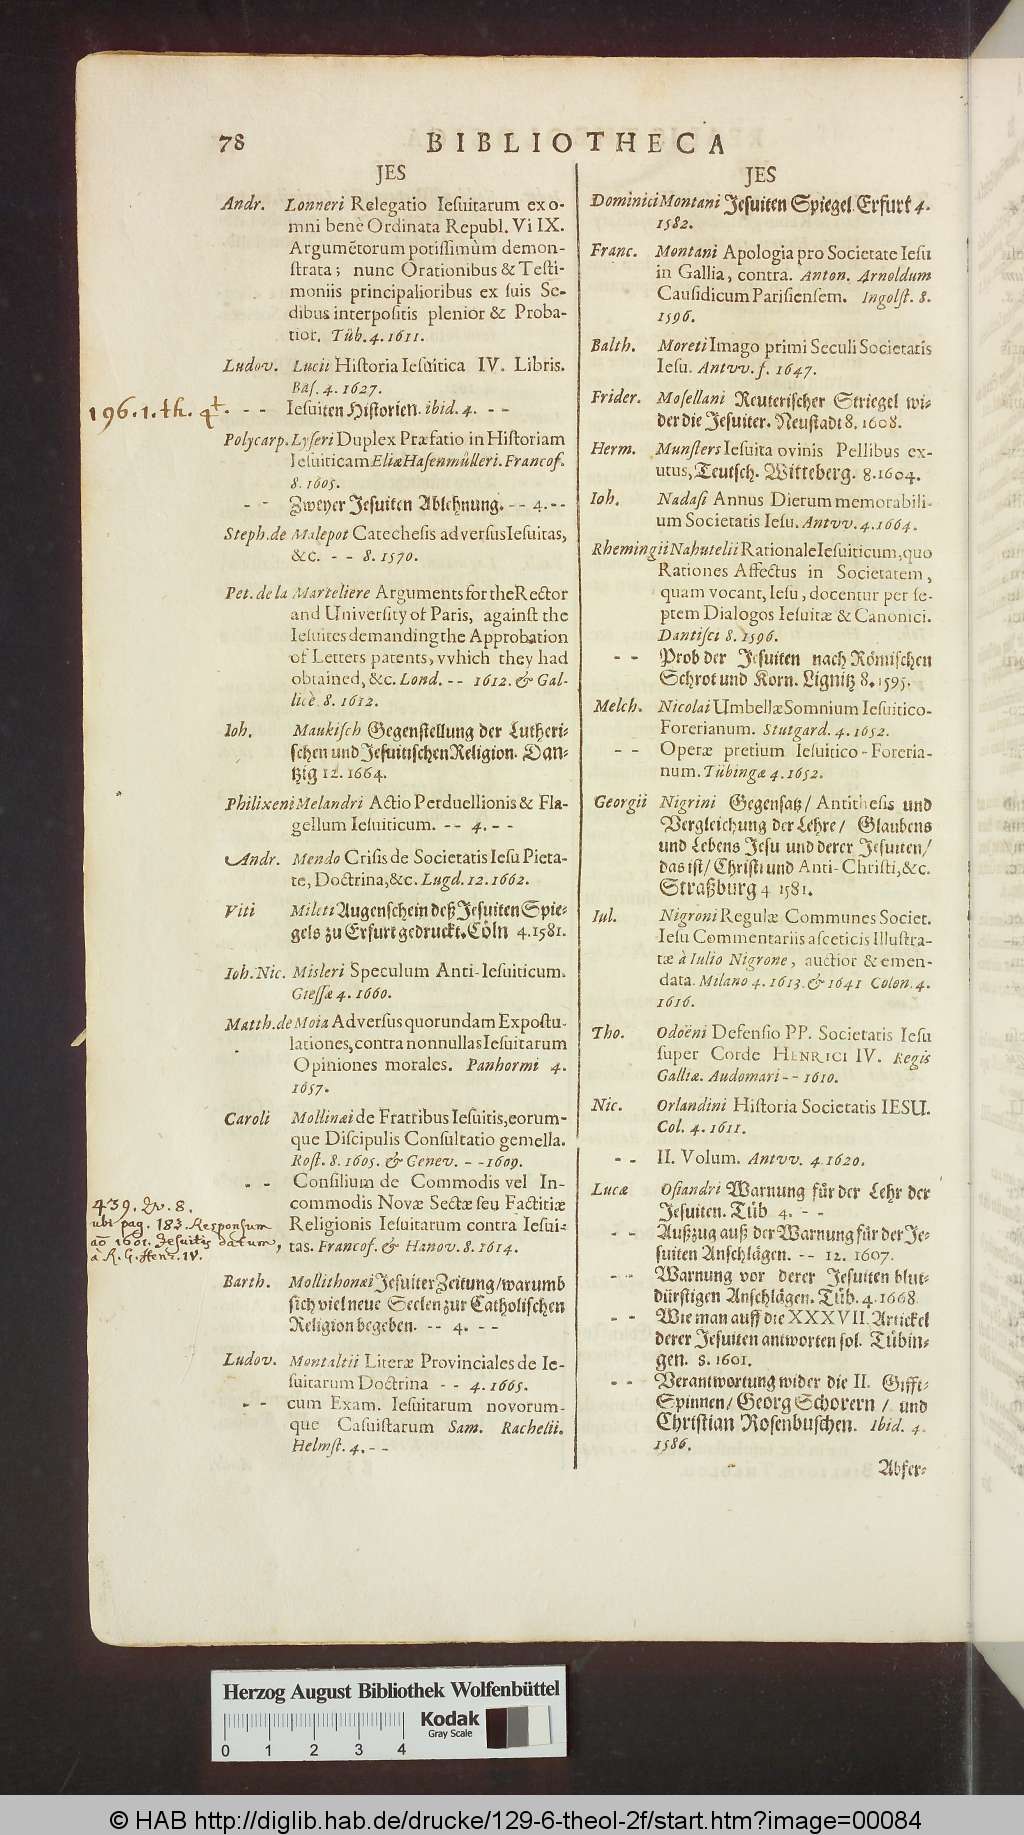 78
BIBLIOTHECA
JES
Andr. Lonneri Relegatio Iesuitarum ex o-
mni benè Ordinata Republ. Vi IX.
Argumētorum potissimùm demon-
strata; nunc Orationibus & Testi-
moniis principalioribus ex suis Se-
dibus interpositis plenior & Proba-
tior. Tüb. 4. 1611.
Ludov. Lucii Historia Iesuitica IV. Libris.
Bas. 4. 1627.
196. 1. th. 4t.
- - Iesuiten Historien. ibid. 4. - -
Polycarp. Lyseri Duplex Præfatio in Historiam
Iesuiticam Eliæ Hasenmülleri. Francof.
8. 1605.
- - Zweyer Jesuiten Ablehnung. - - 4. - -
Steph. de Malepot Catechesis adversus Iesuitas,
&c. - - 8. 1570.
Pet. de la Marteliere Arguments for the Rector
and University of Paris, against the
Iesuites demanding the Approbation
of Letters patents, vvhich they had
obtained, &c. Lond. - - 1612. & Gal-
licè 8. 1612.
Ioh. Maukisch Gegenstellung der Lutheri-
schen und Jesuitischen Religion. Dan-
tzig 12. 1664.
Philixeni Melandri Actio Perduellionis & Fla-
gellum Iesuiticum. - - 4. - -
Andr. Mendo Crisis de Societatis Iesu Pieta-
te, Doctrina, &c. Lugd. 12. 1662.
Viti Mileti Augenschein deß Jesuiten Spie-
gels zu Erfurt gedruckt. Cöln 4. 1581.
Ioh. Nic. Misleri Speculum Anti-Iesuiticum.
Giessæ 4. 1660.
Matth. de Moia Adversus quorundam Expostu-
lationes, contra nonnullas Iesuitarum
Opiniones morales. Panhormi 4.
1657.
Caroli Mollinæi de Fratribus Iesuitis, eorum-
que Discipulis Consultatio gemella.
Rost. 8. 1605. & Genev. - - 1609.
- - Consilium de Commodis vel In-
commodis Novæ Sectæ seu Factitiæ
Religionis Iesuitarum contra Iesui-
tas. Francof. & Hanov. 8. 1614.
439. Qv. 8.
ubi pag. 183. Responsum
aō 1601. Jesuitis datum,
à R. G. Henr. IV.
Barth. Mollithonæi Jesuiter Zeitung/warumb
sich viel neue Seelen zur Catholischen
Religion begeben. - - 4. - -
Ludov. Montaltii Literæ Provinciales de Ie-
suitarum Doctrina - - 4. 1665.
- - cum Exam. Iesuitarum novorum-
que Casuistarum Sam. Rachelii.
Helmst. 4. - -
JES
Dominici Montani Jesuiten Spiegel. Erfurt 4.
1582.
Franc. Montani Apologia pro Societate Iesu
in Gallia, contra. Anton. Arnoldum
Causidicum Parisiensem. Ingolst. 8.
1596.
Balth. Moreti Imago primi Seculi Societatis
Iesu. Antvv. f. 1647.
Frider. Mosellani Reuterischer Striegel wi-
der die Jesuiter. Neustadt 8. 1608.
Herm. Munsters Iesuita ovinis Pellibus ex-
utus, Teutsch. Witteberg. 8. 1604.
Ioh. Nadasi Annus Dierum memorabili-
um Societatis Iesu. Antvv. 4. 1664.
Rhemingii Nahutelii Rationale Iesuiticum, quo
Rationes Affectus in Societatem,
quam vocant, Iesu, docentur per se-
ptem Dialogos Iesuitæ & Canonici.
Dantisci 8. 1596.
- - Prob der Jesuiten nach Römischen
Schrot und Korn. Lignitz 8. 1595.
Melch. Nicolai Umbellæ Somnium Iesuitico-
Forerianum. Stutgard. 4. 1652.
- - Operæ pretium Iesuitico-Foreria-
num. Tübingæ 4. 1652.
Georgii Nigrini Gegensatz/ Antithesis und
Vergleichung der Lehre/ Glaubens
und Lebens Jesu und derer Jesuiten/
das ist/ Christi und Anti-Christi, &c.
Straßburg 4 1581.
Iul. Nigroni Regulæ Communes Societ.
Iesu Commentariis asceticis Illustra-
tæ à Iulio Nigrone, auctior & emen-
data. Milano 4. 1613. & 1641 Colon. 4.
1616.
Tho. Odoëni Defensio PP. Societatis Iesu
super Corde HENRICI IV. Regis
Galliæ. Audomari - - 1610.
Nic. Orlandini Historia Societatis IESU.
Col. 4. 1611.
- - II. Volum. Antvv. 4. 1620.
Lucæ Osiandri Warnung für der Lehr der
Jesuiten. Tüb 4. - -
- - Außzug auß der Warnung für der Je-
suiten Anschlägen. - - 12. 1607.
- - Warnung vor derer Jesuiten blut-
dürstigen Anschlägen. Tüb. 4. 1668.
- - Wie man auff die XXXVII. Artickel
derer Jesuiten antworten sol. Tübin-
gen. 8. 1601.
- - Verantwortung wider die II. Gifft-
Spinnen/ Georg Schorern / und
Christian Rosenbuschen. Ibid. 4.
1586.
Abfer-
Herzog August Bibliothek Wolfenbüttel
0 1 2 3 4
Kodak
Gray Scale
© HAB http://diglib.hab.de/drucke/129-6-theol-2f/start.htm?image=00084